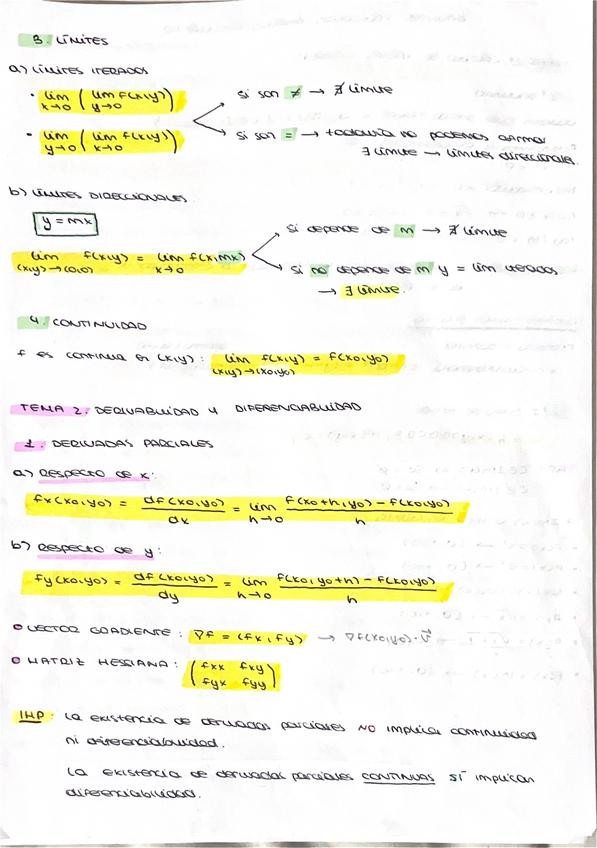 3. LÍMITES
a) LÍMITES ITERADOS
• lim x→0 ( lim y→0 f(x,y) )
Si son ≠ → ∄ límite
• lim y→0 ( lim x→0 f(x,y) )
Si son = → todavía no podemos afirmar
∃ límite → límites direccionales.
b) LÍMITES DIRECCIONALES
y = mx
Si depende de m → ∄ límite
lim (x,y)→(0,0) f(x,y) = lim x→0 f(x,mx)
Si no depende de m y = lim iterados
→ ∃ límite.
4. CONTINUIDAD
f es continua en (x,y) : lim (x,y)→(x0,y0) f(x,y) = f(x0,y0)
TEMA 2. DERIVABILIDAD Y DIFERENCIABILIDAD
1. DERIVADAS PARCIALES
a) Respecto de x:
fx(x0,y0) = df(x0,y0)/dx = lim h→0 f(x0+h,y0) - f(x0,y0)/h
b) Respecto de y:
fy(x0,y0) = df(x0,y0)/dy = lim h→0 f(x0,y0+h) - f(x0,y0)/h
VECTOR GRADIENTE : ∇f = (fx, fy) → ∇f(x0,y0)·v⃗
MATRIZ HESSIANA : ( fxx fxy
fyx fyy )
IMP : La existencia de derivadas parciales NO implica continuidad
ni diferenciabilidad.
La existencia de derivadas parciales CONTINUAS SÍ implican
diferenciabilidad.